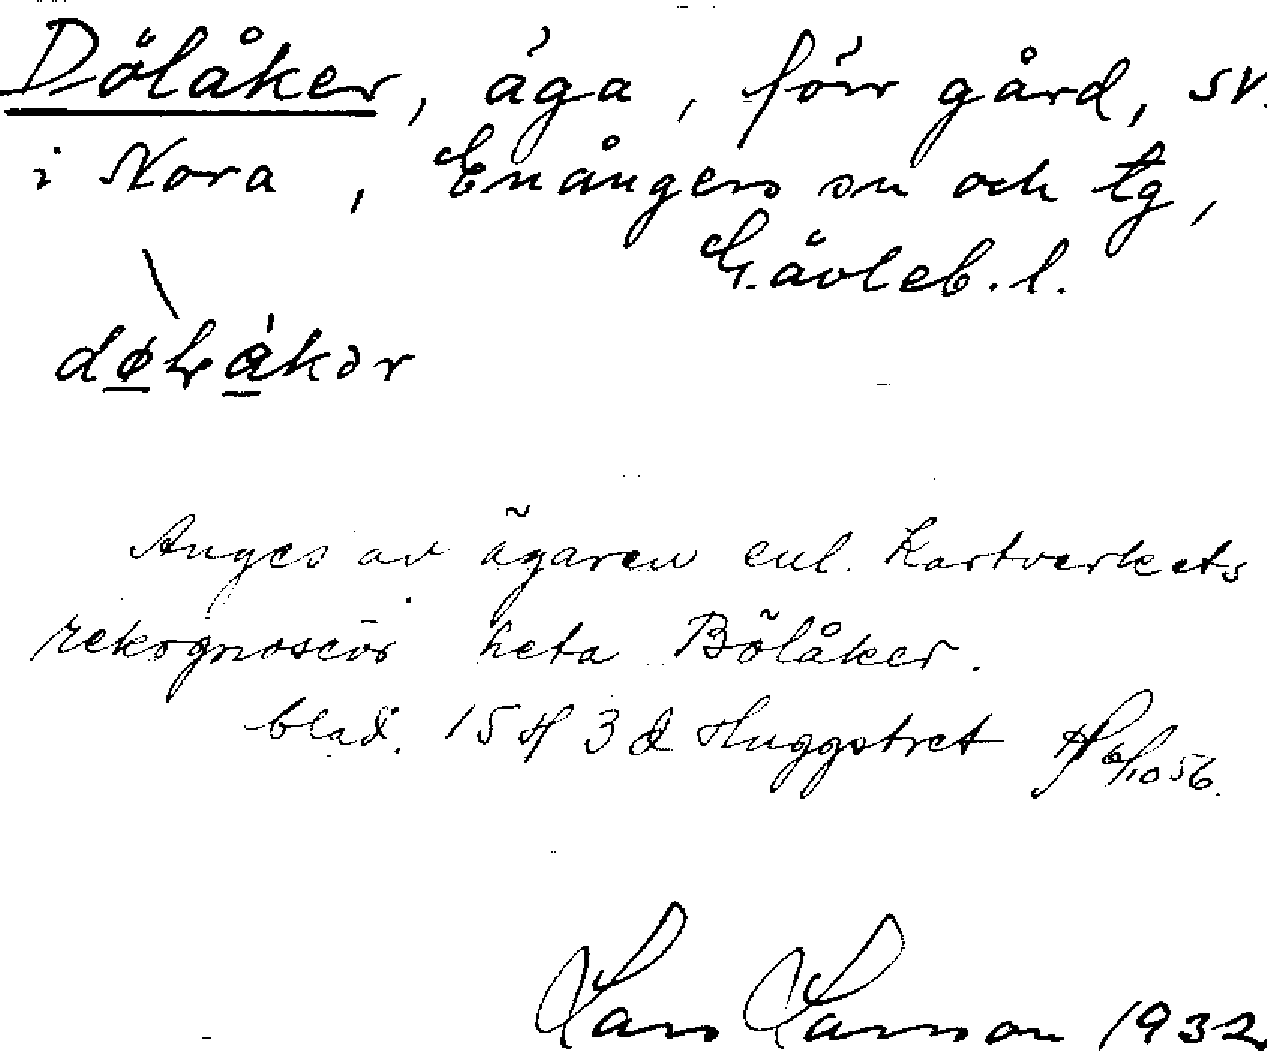 Dölåker, äga, förr gård, SV.
i Nora, Enångers sn och tg,
Gävleb. l.
døLåkər
Anges av ägaren enl. Kartverkets
rekognoscör heta Bölåker.
blad. 15 H 3 d Huggstret 6/10 56.
Lars Larsson 1932